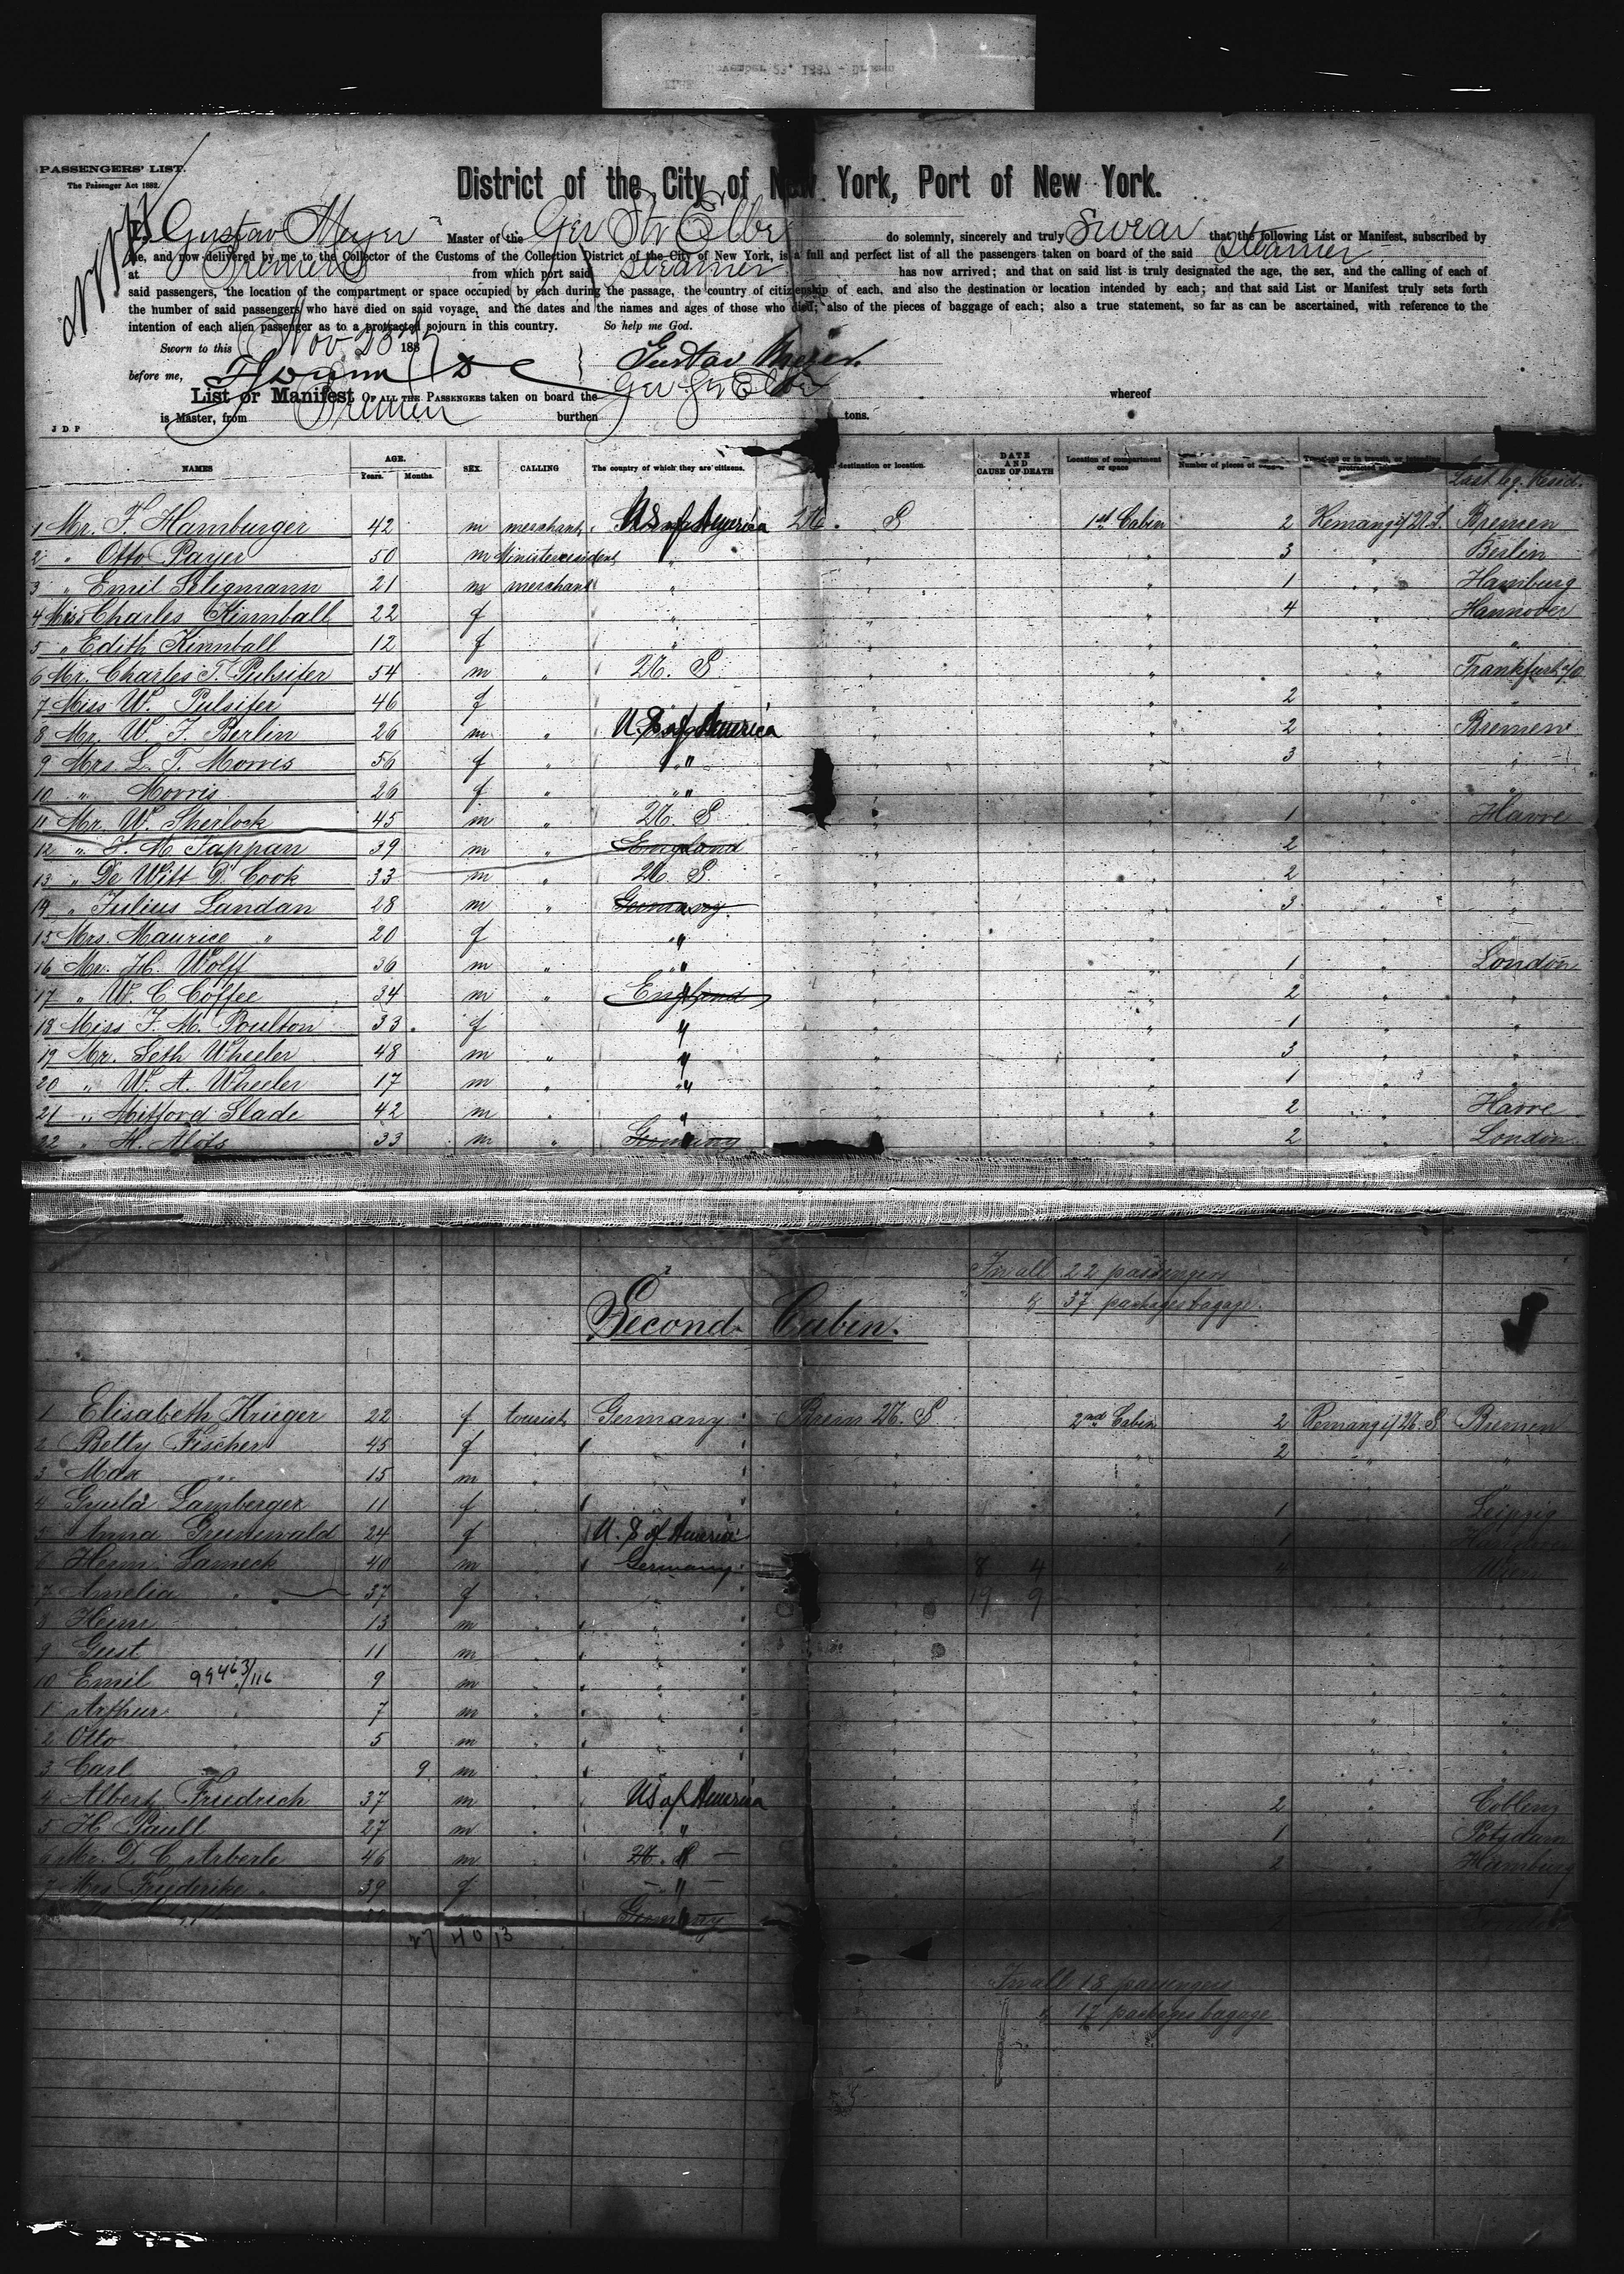 November 23, 1887 - Bremen
PASSENGERS' LIST.
The Passenger Act 1882.
District of the City of New York, Port of New York.
I, Gustav Meyer Master of the Ger Str Elbe do solemnly, sincerely and truly Swear that the following List or Manifest, subscribed by
me, and now delivered by me to the Collector of the Customs of the Collection District of the City of New York, is a full and perfect list of all the passengers taken on board of the said Steamer
at Bremen from which port said Steamer has now arrived; and that on said list is truly designated the age, the sex, and the calling of each of
said passengers, the location of the compartment or space occupied by each during the passage, the country of citizenship of each, and also the destination or location intended by each; and that said List or Manifest truly sets forth
the number of said passengers who have died on said voyage, and the dates and the names and ages of those who died; also of the pieces of baggage of each; also a true statement, so far as can be ascertained, with reference to the
intention of each alien passenger as to a protracted sojourn in this country. So help me God.
Sworn to this Nov 23 1887 Gustav Meyer
before me, Ger Str Elbe
List or Manifest OF ALL THE PASSENGERS taken on board the whereof
is Master, from Bremen burthen tons.
J D P
NAMES AGE. Years. Months. SEX. CALLING The country of which they are citizens. destination or location. DATE AND CAUSE OF DEATH Location of compartment or space Number of pieces of Transient or in transit, or intending protracted Last leg. Resid.
1 Mr. F Hamburger 42 m merchant U S of America U. S 1st Cabin 2 Remang if U. S. Bremen
2 " Otto Payer 50 m Ministerresident " 3 " Berlin
3 " Emil Seligmann 21 m merchant " 1 " Hamburg
4 Miss Charles Kimball 22 f " 4 " Hannover
5 " Edith Kimball 12 f " " "
6 Mr. Charles T. Pulsifer 54 m " U. S " Frankfurt a/O
7 Miss W. Pulsifer 46 f 2 "
8 Mr. W. F. Berlin 26 m " U. S of America 2 " Bremen
9 Mrs. L. T. Morris 56 f " " 3 " "
10 " Morris 26 f " " " "
11 Mr. W. Sherlock 45 m " U. S 1 " Havre
12 " F. M. Tappan 39 m " England 2 " "
13 " De Witt D. Cook 33 m " U. S. 2 " "
14 " Julius Landan 28 m " Germany 3 " "
15 Mrs. Maurice " 20 f " " "
16 Mr. H. Wolff 36 m " " 1 " London
17 " W. C. Coffee 34 m " England 2 " "
18 Miss F. M. Poulton 33 f " 1 " "
19 Mr. Seth Wheeler 48 m " " 3 " "
20 " W. A. Wheeler 17 m " " 1 " "
21 " Mifford Slade 42 m " " 2 " Havre
22 " H. Alots 33 m " Germany 2 " London
In all 22 passengers
" & 37 packages bagage.
Second Cabin.
1 Elisabeth Krieger 22 f tourist Germany Brem U. S 2nd Cabin 2 Remang if U. S Bremen
2 Betty Fischer 45 f " 2 " "
3 Max " 15 m " "
4 Lamberger 11 f " 1 Leipzig
5 Anna Grunwald 24 f " U. S of America 1 Hannover
6 Herm Lameck 40 m " Germany 8 4 4 Wien
7 Amelia " 37 f 19 9 "
8 Herm 13 m " "
9 Gust 11 m " "
10 Emil 99463/116 9 m " "
1 Arthur 7 m " "
2 Otto 5 m " "
3 Carl 9 m " "
4 Albert Friedrich 37 m " US of America 2 " Coblenz
5 H. Paull 27 m " " 1 Potsdam
6 Mr. D. C. Arberle 46 m " U. S 2 Hamburg
7 Mrs Friederike " 39 f "
Germany
27 40 13
In all 18 passengers
" 17 packages bagage